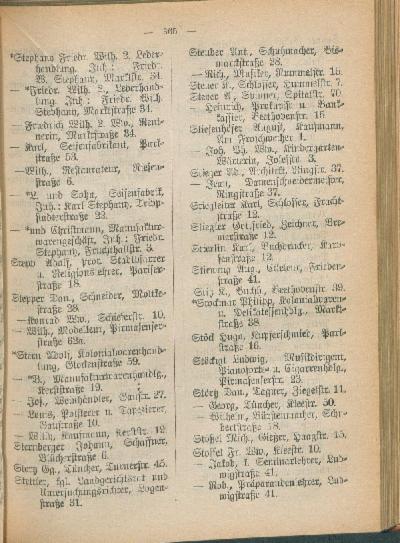 — 565 —
*Stephany Friedr. Wilh. 2. Leder-
handlung. Inh.: Friedr.
W. Stephany, Marktstr. 34.
— *Friedr. Wilh. 2, Lederhand-
lung. Inh.: Friedr. Wilh.
Stephany, Marktstraße 34.
— Friedrich Wilh. 2. Ww., Rent-
nerin, Marktstraße 34.
— Karl, Seifenfabrikant, Park-
straße 53.
— Wilh., Restaurateur,
straße 6.
— *L. und Sohn, Seifenfabrik,
Inh.: Karl Stephany,
— *und Christmann, Manufaktur-
warengeschäft, Inh.: Friedr.
Stephany, Fruchthallstr. 5.
Stepp Adolf, prot. Stadtpfarrer
u. Religionslehrer, Pariser-
straße 18.
Stepper Dan., Schneider, Moltke-
straße 38.
— Konrad Ww., Schillerstr. 10.
— Wilh., Modelleur, Pirmasenser-
straße 62a.
*Stern Adolf, Kolonialwarenhand-
lung, Glockenstraße 59.
— *B., Manufakturwarenhandlg.,
Kerststraße 19.
— Jos., Weinhändler, 27.
— Louis, Polsterer u. Tapezierer,
10.
— Wilh., Kaufmann, 12.
Sternberger Johann, Schaffner,
straße 6.
Sterz Gg., Tüncher, Turnerstr. 45.
Stettler, kgl. Landgerichtsrat und
Untersuchungsrichter, Logen-
straße 31.
Steuber Ant., Schuhmacher, Bis-
marckstraße 28.
— Rich., Musiker, Rummelstr. 15.
Steuer J., Schlosser, 7.
Steyer A., Spinner, Spitalstr. 70.
— Heinrich, Prokurist u. Bank-
kassier, Beethovenstr. 15
Stiefenhöfer August, Kaufmann,
Am Froschweiher 1.
— Joh. Ph. Ww., Kindergarten-
Wärterin, Josefstr. 3.
Stiegler Ad., Architekt, Ringstr. 37.
— Jean, Damenschneidermeister,
Ringstraße 37.
Stiegleiter Karl, Schlosser, Frucht-
straße 12.
Stiegler Gottfried, Zeichner, Bre-
merstraße 12.
Karl, Buchdrucker,
straße 12.
Stiening Aug., Friseur,
straße 41.
Beethovenstr. 39.
*Stockmar Philipp, Kolonialwaren-
u. Delikatessenhdlg., Markt-
straße 38
Stöck Hugo, Kupferschmied, Park-
straße 16.
Stöckigt Ludwig, Musikdirigent,
Pianoforte- u. Cigarrenhdlg.,
Pirmasenserstr. 23.
Störy Dan., Tagner, Ziegelstr. 11.
— Georg, Tüncher, Kleestr. 50.
— Wilhelm, Bürstenmacher,
78.
Stoffel Mich., Gießer, Haagstr. 15.
Stoffel Fr. Ww., Kleestr. 10.
— Jakob, k. Seminarlehrer, Lud-
wigstraße 41.
— Rob., Präparandenlehrer, Lud-
wigstraße 41.